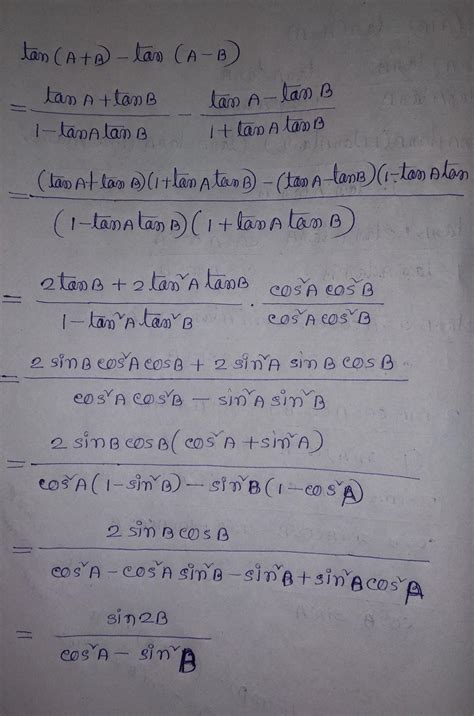 tan(A+B) - tan (A-B)
= (tanA + tanB)/(1-tanAtanB) - (tanA - tanB)/(1+tanAtanB)
= ((tanA+tanB)(1+tanAtanB) - (tanA-tanB)(1-tanAtan)/((1-tanAtanB)(1+tanAtanB))
= (2tanB + 2tan²A tanB)/(1-tan²Atan²B) . (cos²A cos²B)/(cos²A cos²B)
= (2 sinB cos²A cosB + 2 sin²A sinB cosB)/(cos²A cos²B - sin²A sin²B)
= (2 sinB cosB (cos²A + sin²A))/(cos²A (1-sin²B) - sin²B (1-cos²A))
= (2 sinB cosB)/(cos²A - cos²A sin²B - sin²B + sin²B cos²A)
= (sin2B)/(cos²A - sin²B)